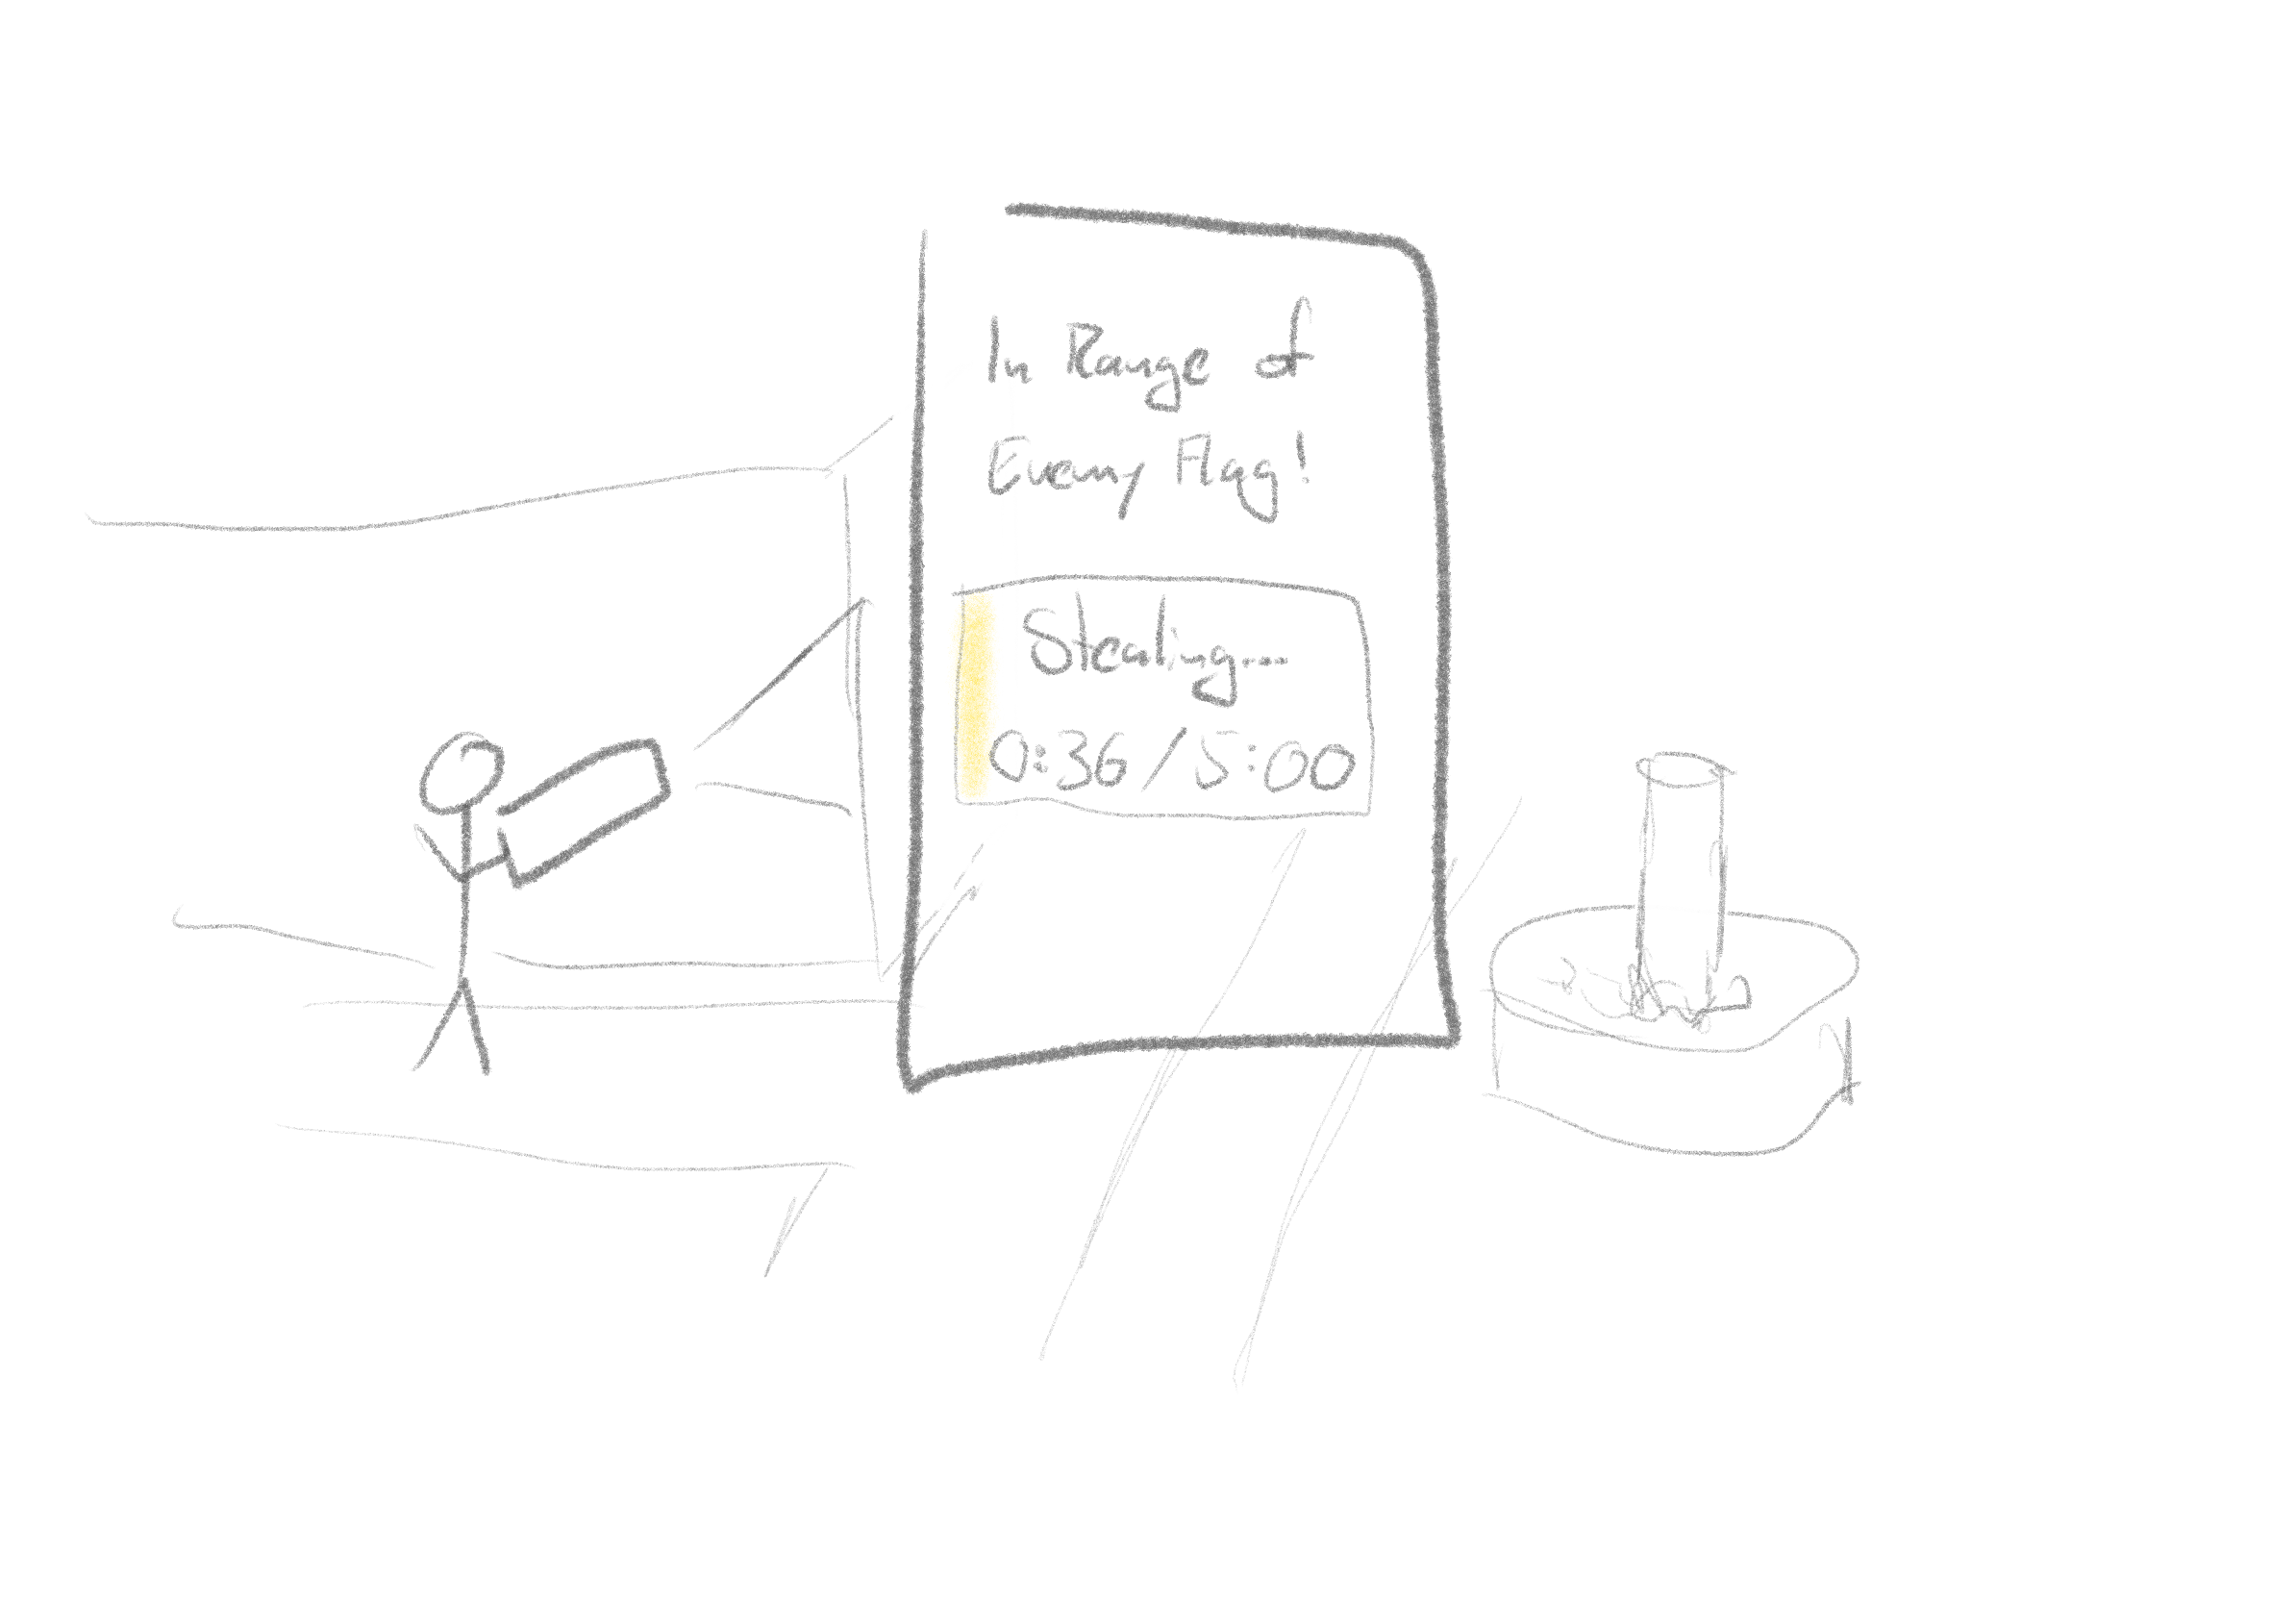 In Range of
Enemy Flag!
Stealing...
0:36/5:00